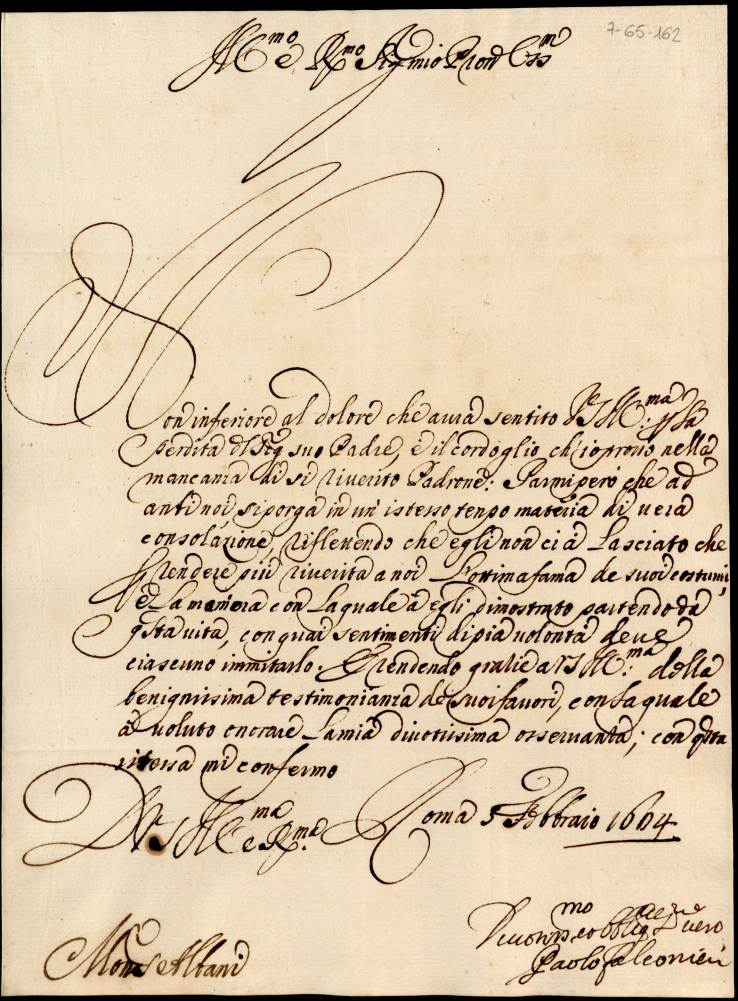 7-65-162
Ill.mo e R.mo Sig.r mio Pron Oss.mo
Non inferiore al dolore che avrà sentito V.S. Ill.ma p la
perdita del Sig suo Padre, è il cordoglio ch'io provo nella
mancanza di sì riverito Padrone: Parmi però che ad
ambi noi, si porga in un istesso tenpo materia di vera
consolazione, riflettendo che egli non ci à Lasciato che
rendere più riverita a noi L'ottima fama de suoi costumi,
e La maniera con La quale à egli dimostrato partendo da
qsta vita, con quai sentimenti di pia volontà deve
ciascuno immitarlo. E rendendo gratie a VS Ill.ma della
benignissima testimonianza de suoi favori, con La quale
à voluto onorare La mia divotissima osservanza; con qsta
istessa mi confermo
Di VS Ill.ma e R.ma Roma 5 Febbraio 1684
Divotiss.mo e obblig ser.re vero
Paolo Falconieri
Mons.r Albani